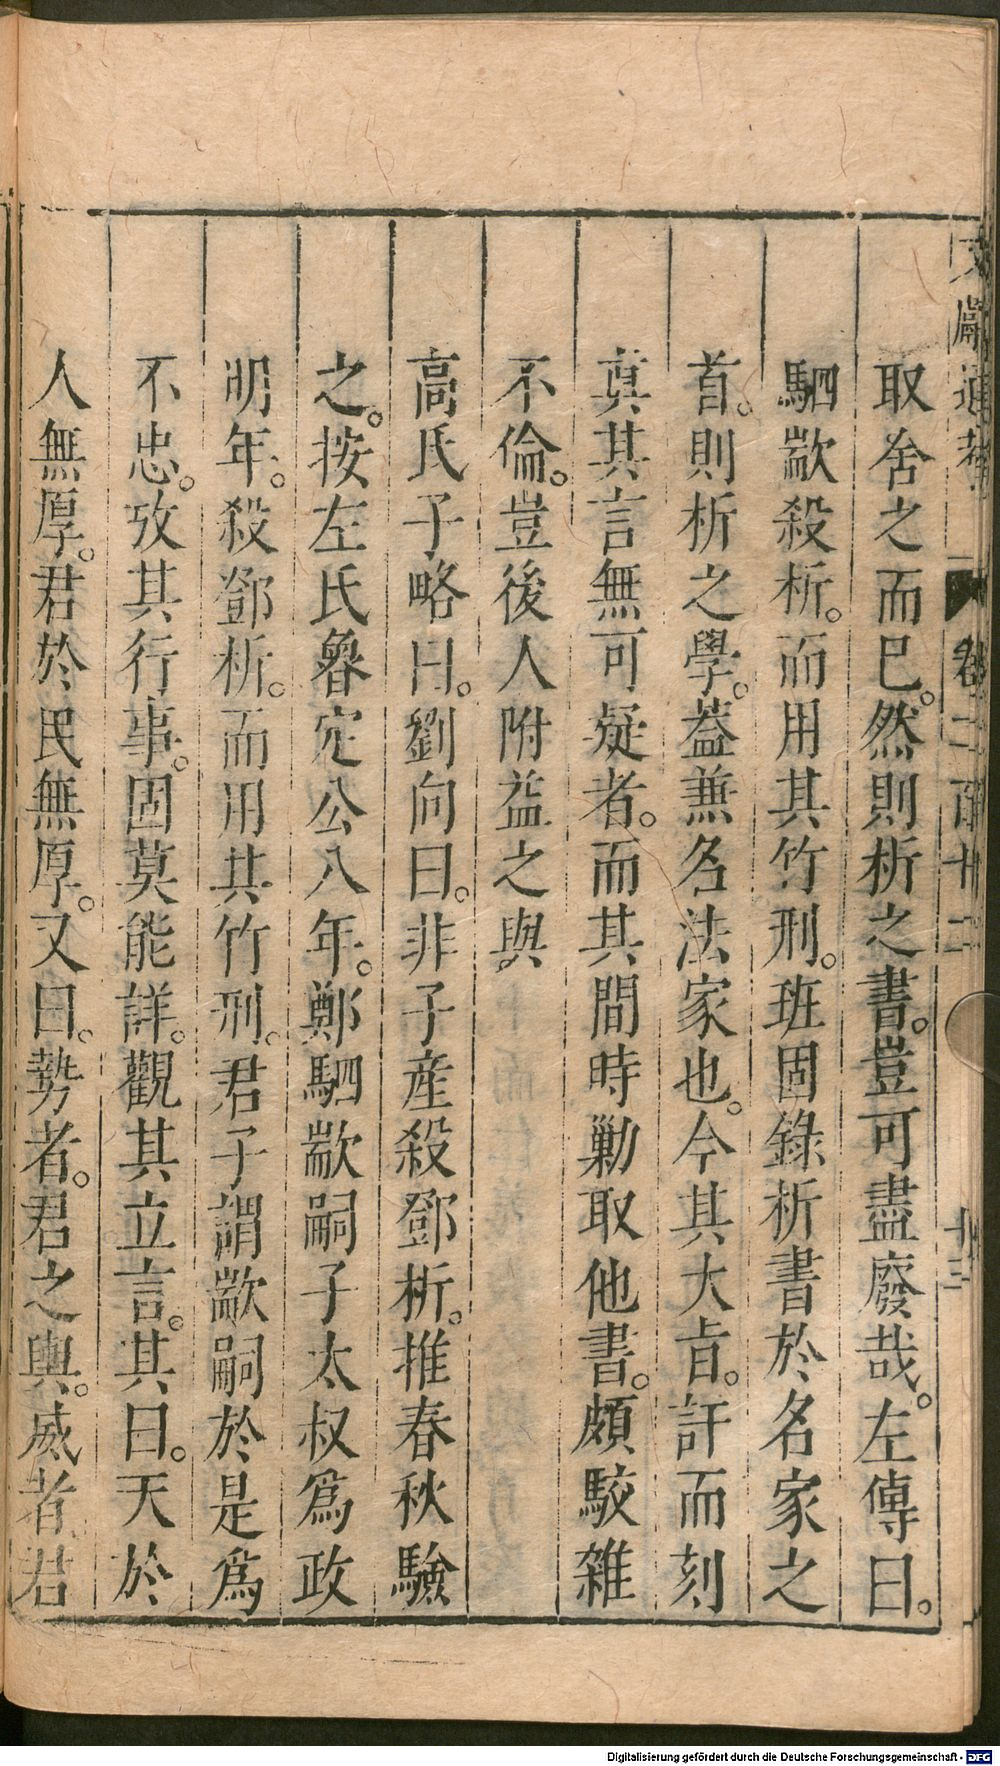 文獻通考 卷二百十二 十三
取舍之而已。然則析之書。豈可盡廢哉。左傳曰。
駟歂殺析。而用其竹刑。班固錄析書於名家之
首。則析之學。蓋兼名法家也。今其大旨。訐而刻
真其言無可疑者。而其間時勦取他書。頗駮雜
不倫。豈後人附益之與
高氏子略曰。劉向曰。非子產殺鄧析。推春秋驗
之。按左氏魯定公八年。鄭駟歂嗣子太叔爲政
明年。殺鄧析。而用其竹刑。君子謂歂嗣於是爲
不忠。攷其行事。固莫能詳。觀其立言。其曰。天於
人無厚。君於民無厚。又曰。勢者。君之輿。威者。君
Digitalisierung gefördert durch die Deutsche Forschungsgemeinschaft - DFG